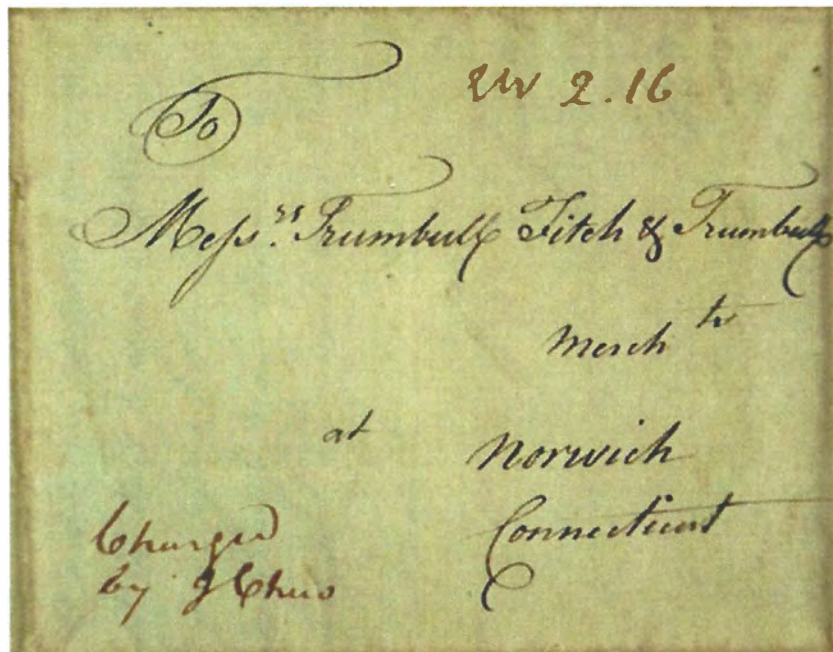 2.16
To
Messrs. Trumbull Fitch & Trumbull
Merchts
at Norwich
Connecticut
Charged
by J Chew